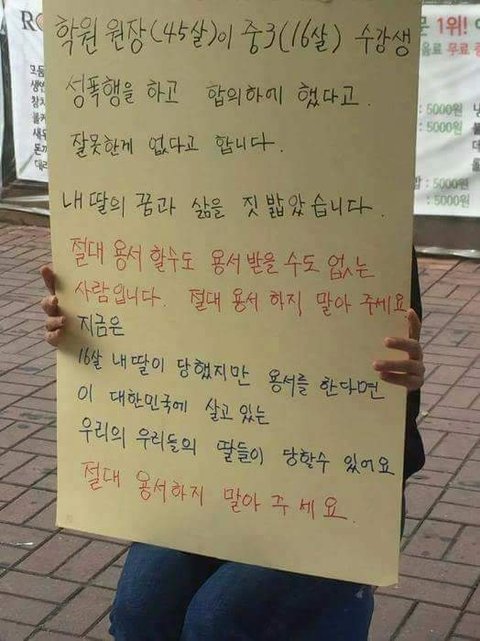 학원 원장(45살)이 중3(16살) 수강생
성폭행을 하고 합의하에 했다고.
잘못한게 없다고 합니다.
내 딸의 꿈과 삶을 짓밟았습니다.
절대 용서 할수도 용서 받을 수도 없는
사람입니다. 절대 용서 하지 말아 주세요
지금은
16살 내 딸이 당했지만 용서를 한다면
이 대한민국에 살고 있는
우리의 우리들의 딸들이 당할수 있어요
절대 용서하지 말아 주세요.
1위!
무료
: 5000원
: 5000원
: 5000원